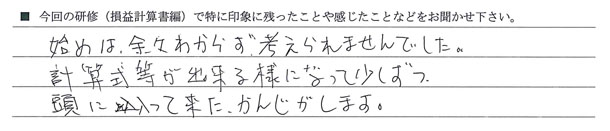 ■ 今回の研修（損益計算書編）で特に印象に残ったことや感じたことなどをお聞かせ下さい。
始めは、余々わからず、考えられませんでした。
計算式等が出来る様になって少しずつ、
頭に入って来た、かんじがします。